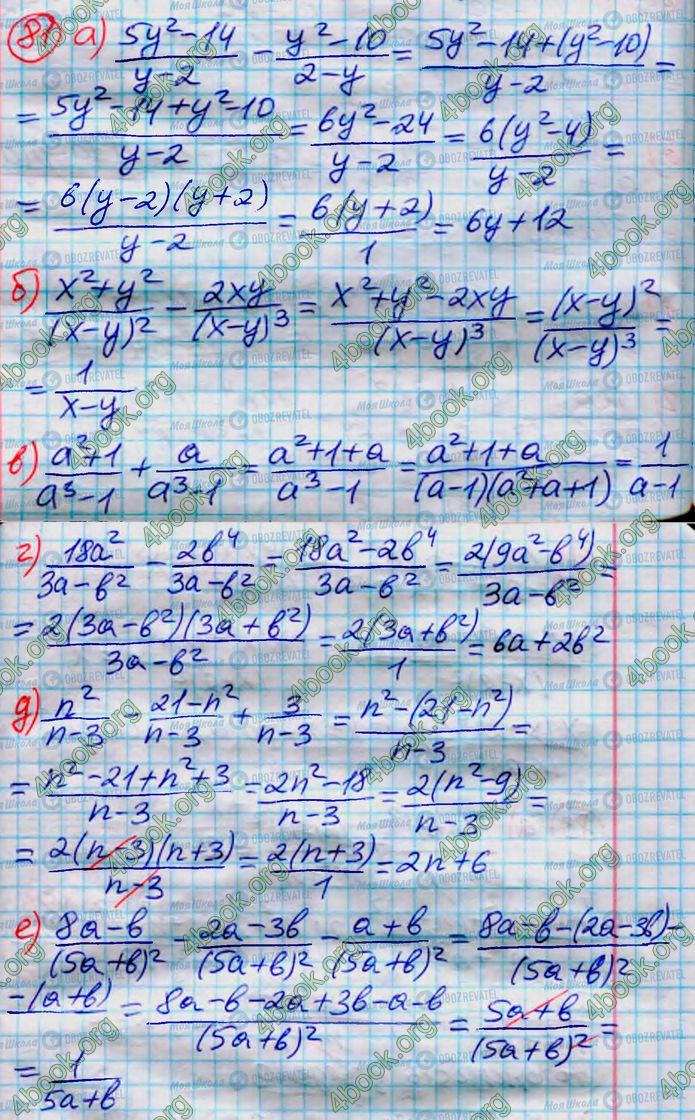 81 а) (5y²-14)/(y-2) - (y²-10)/(2-y) = (5y²-14+(y²-10))/(y-2) =
= (5y²-14+y²-10)/(y-2) = (6y²-24)/(y-2) = 6(y²-4)/(y-2) =
= 6(y-2)(y+2)/(y-2) = 6(y+2)/1 = 6y+12
б) (x²+y²)/(x-y)² - 2xy/(x-y)³ = (x²+y²-2xy)/(x-y)³ = (x-y)²/(x-y)³ =
= 1/(x-y)
в) (a²+1)/(a³-1) + a/(a³-1) = (a²+1+a)/(a³-1) = (a²+1+a)/((a-1)(a²+a+1)) = 1/(a-1)
г) 18a²/(3a-в²) - 2в⁴/(3a-в²) = (18a²-2в⁴)/(3a-в²) = 2(9a²-в⁴)/(3a-в²) =
= 2(3a-в²)(3a+в²)/(3a-в²) = 2(3a+в²)/1 = 6a+2в²
д) n²/(n-3) - (21-n²)/(n-3) + 3/(n-3) = (n²-(21-n²))/(n-3) =
= (n²-21+n²+3)/(n-3) = (2n²-18)/(n-3) = 2(n²-9)/(n-3) =
= 2(n-3)(n+3)/(n-3) = 2(n+3)/1 = 2n+6
е) (8a-в)/(5a+в)² - (2a-3в)/(5a+в)² - (a+в)/(5a+в)² = (8a-в-(2a-3в)-)/(5a+в)²
-(a+в) = (8a-в-2a+3в-a-в)/(5a+в)² = (5a+в)/(5a+в)² =
= 1/(5a+в)
4book.org
Моя Школа OBOZREVATEL